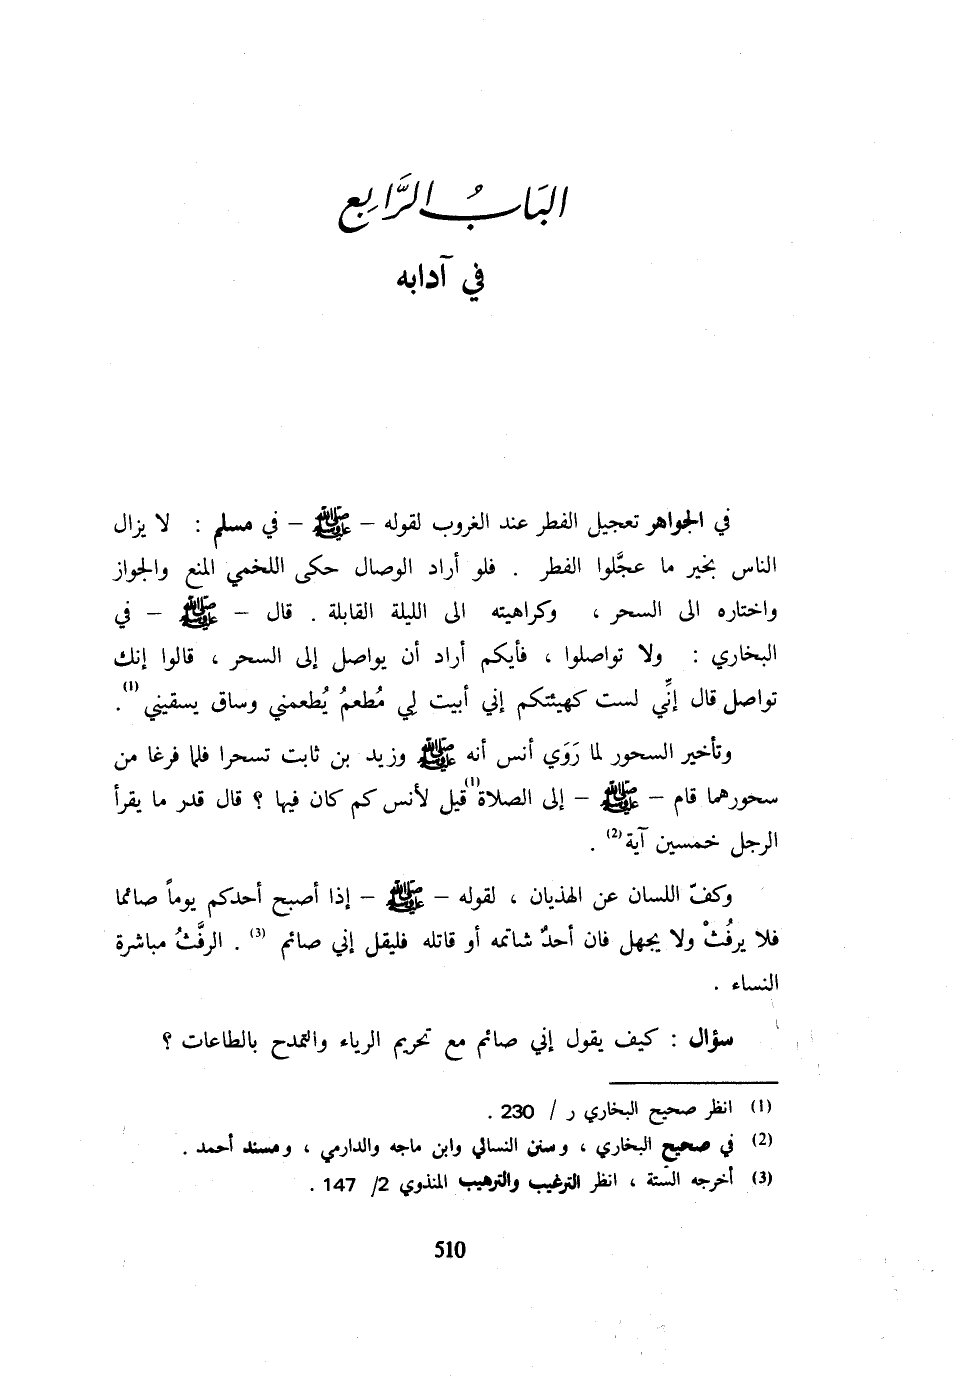 البَابُ الرَّابِع
في آدابه
في الجواهر تعجيل الفطر عند الغروب لقوله – ﷺ – في مسلم : لا يزال
الناس بخير ما عجَّلوا الفطر . فلو أراد الوصال حكى اللخمي المنع والجواز
واختاره الى السحر ، وكراهيته الى الليلة القابلة . قال – ﷺ – في
البخاري : ولا تواصلوا ، فأيكم أراد أن يواصل إلى السحر ، قالوا إنك
تواصل قال إنِّي لست كهيئتكم إني أبيت لِي مُطعمُ يُطعمني وساق يسقيني (1) .
وتأخير السحور لما رَوَي أنس أنه ﷺ وزيد بن ثابت تسحرا فلما فرغا من
سحورهما قام – ﷺ – إلى الصلاة (1) قيل لأنس كم كان فيها ؟ قال قدر ما يقرأ
الرجل خمسين آية (2) .
وكفّ اللسان عن الهذيان ، لقوله – ﷺ – إذا أصبح أحدكم يوماً صائما
فلا يرفُثْ ولا يجهل فان أحدٌ شاتمه أو قاتله فليقل إني صائم (3) . الرفَّثُ مباشرة
النساء .
سؤال : كيف يقول إني صائم مع تحريم الرياء والتمدح بالطاعات ؟
(1) انظر صحيح البخاري ر / 230 .
(2) في صحيح البخاري ، وسنن النسائي وابن ماجه والدارمي ، ومسند أحمد .
(3) أخرجه السّتة ، انظر الترغيب والترهيب المنذوي 2/ 147 .
510